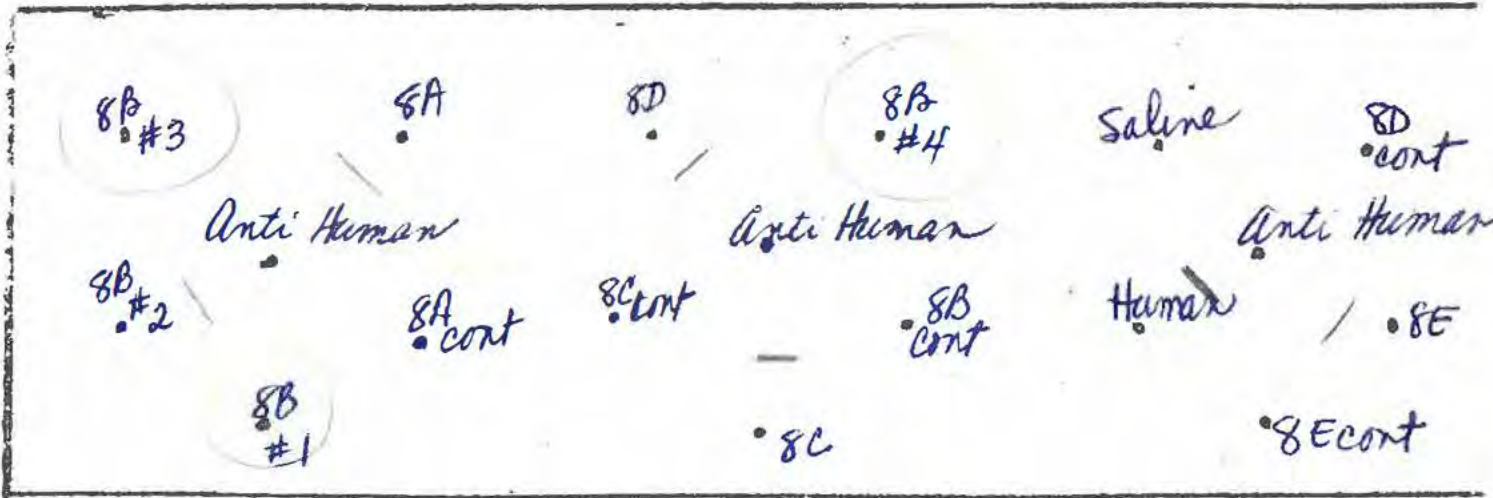 8B
#3
8A
8D
8B
#4
Saline
8D
cont
Anti Human
Anti Human
Anti Human
8B
#2
8A
cont
8C cont
8B
cont
Human
8E
8B
#1
8C
8E cont